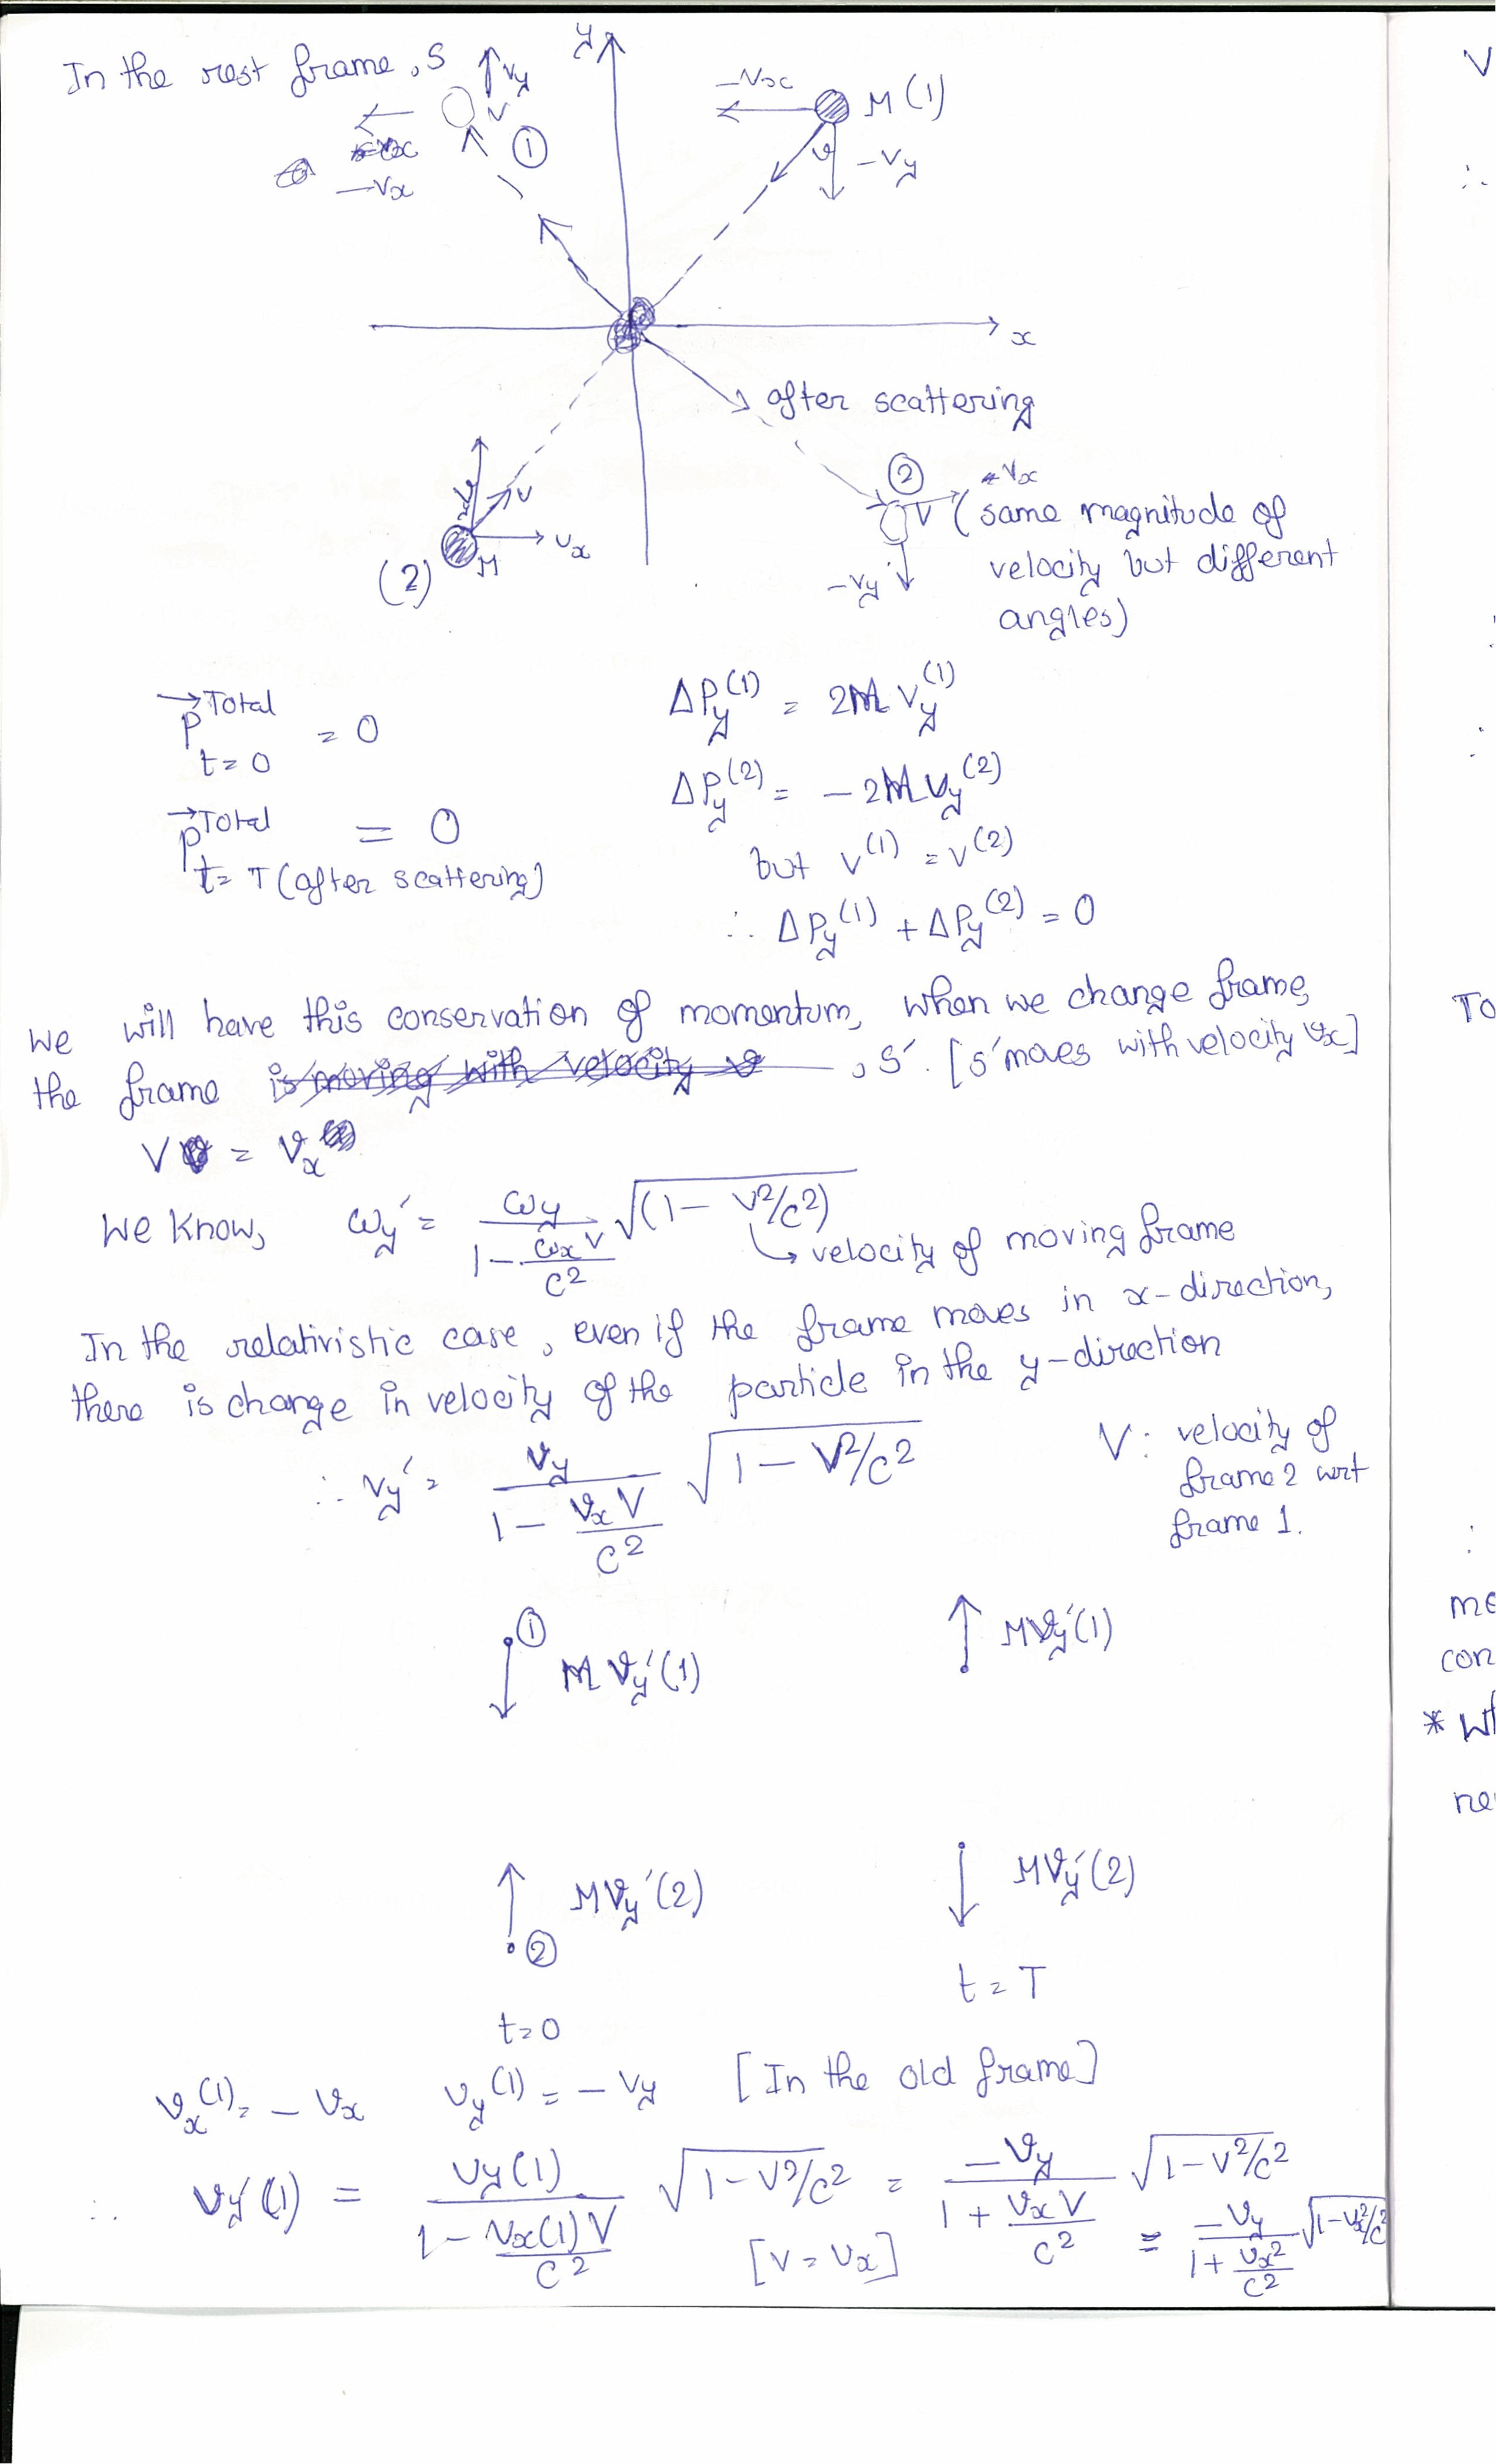 In the rest frame, S
y
vy
v
①
-vx
-vx
M (1)
v
-vy
x
after scattering
②
vx
v (same magnitude of
velocity but different
angles)
-vy
vy
v
vx
(2) M
P⃗ Total t=0 = 0
ΔPy(1) = 2M Vy(1)
ΔPy(2) = -2M Vy(2)
P⃗ Total t=T (after scattering) = 0
but v(1) = v(2)
∴ ΔPy(1) + ΔPy(2) = 0
We will have this conservation of momentum, when we change frame,
the frame is moving with velocity v, S′. [S′ moves with velocity vx]
V = vx
We know, ωy′ = ωy / (1 - ωx V/c²) √(1 - V²/c²)
↳ velocity of moving frame
In the relativistic case, even if the frame moves in x-direction,
there is change in velocity of the particle in the y-direction
∴ vy′ = vy / (1 - vx V/c²) √1 - V²/c²
V: velocity of
frame 2 wrt
frame 1.
①
M vy′(1)
M vy′(1)
M vy′(2)
②
M vy′(2)
t = T
t = 0
vx(1) = - vx vy(1) = - vy [In the old frame]
∴ vy′(1) = vy(1) / (1 - vx(1) V/c²) √1 - V²/c² = -vy / (1 + vx V/c²) √1 - V²/c²
[V = vx]
= -vy / (1 + vx²/c²) √1 - vx²/c²
V
∴
To
me
con
* Wh
ne